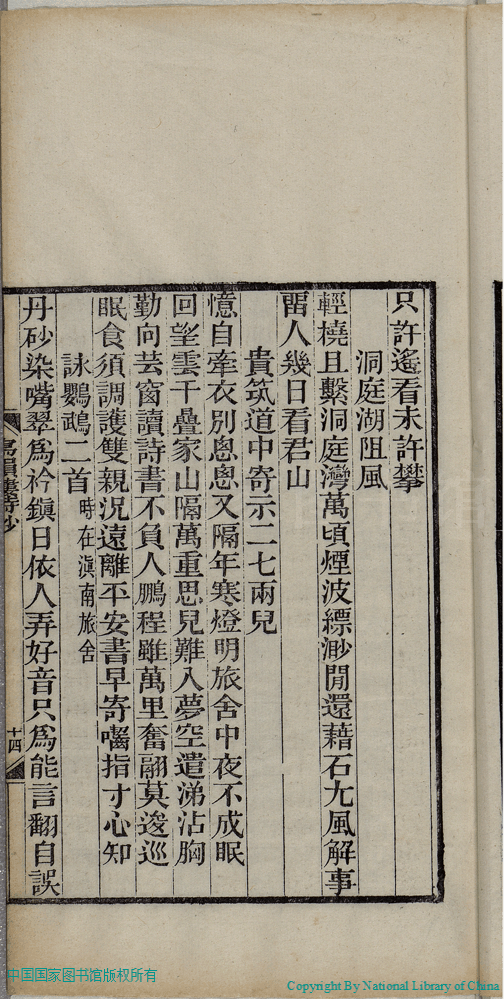 只許遙看未許攀
洞庭湖阻風
輕橈且繫洞庭灣萬頃煙波縹渺閒還藉石尤風解事
畱人幾日看君山
貴筑道中寄示二七兩兒
憶自牽衣別悤悤又隔年寒燈明旅舍中夜不成眠
回望雲千疊家山隔萬重思兒難入夢空遣涕沾胸
勤向芸窗讀詩書不負人鵬程雖萬里奮翮莫逡巡
眠食須調護雙親況遠離平安書早寄囓指寸心知
詠鸚鵡二首時在滇南旅舍
丹砂染嘴翠為衿鎭日依人弄好音只為能言翻自誤
寫韻樓詩鈔
十四
中国国家图书馆版权所有
Copyright By National Library of China